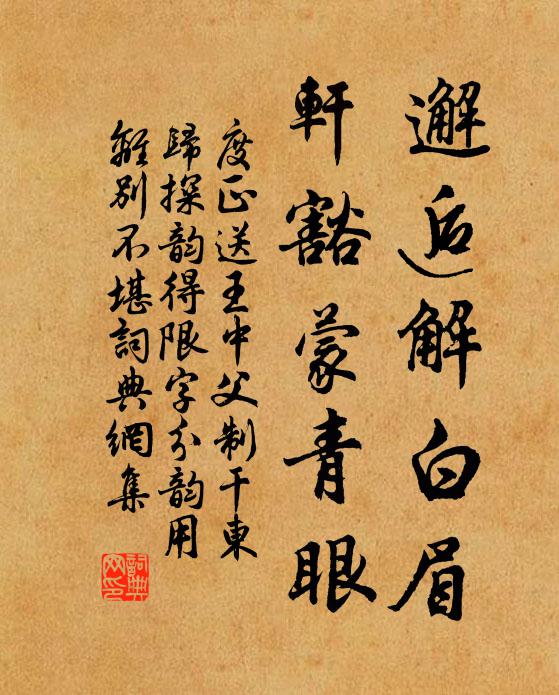 邂逅解白眉
軒豁蒙青眼
度正送王中父制干東
歸探韵得限字分韵用
離別不堪詞典網集
詞典网印